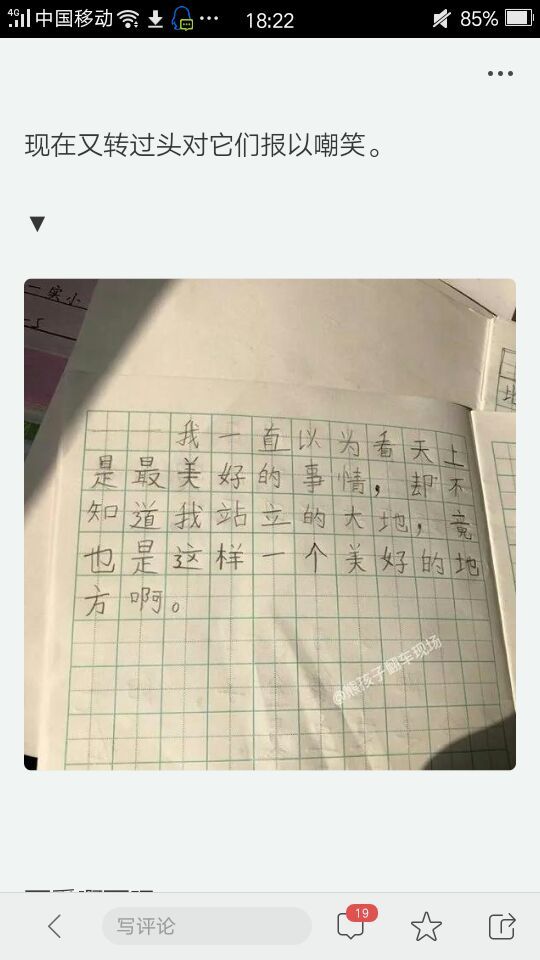 4G 中国移动 18:22 85%
现在又转过头对它们报以嘲笑。
▼
一实小
我一直以为看天上
是最美好的事情，却不
知道我站立的大地，竟
也是这样一个美好的地
方啊。
@熊孩子翻车现场
写评论
19